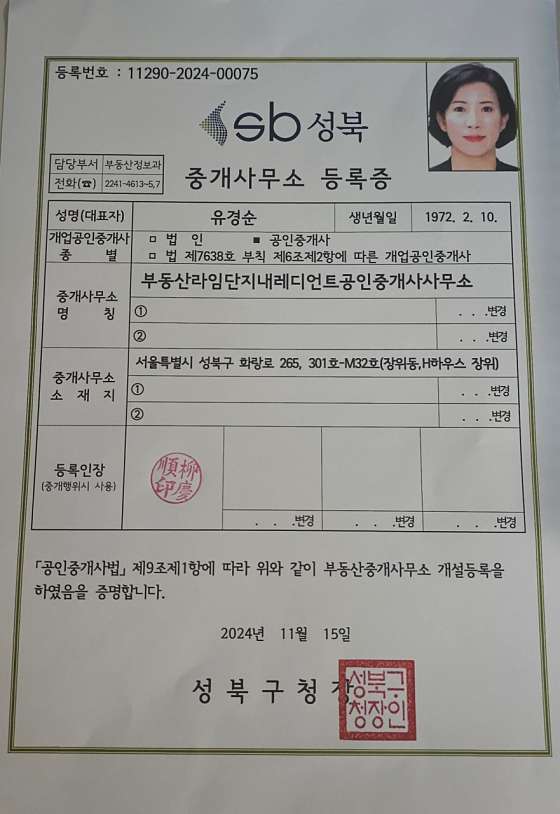 등록번호 : 11290-2024-00075
sb 성북
담당부서 부동산정보과
전화(☎) 2241-4613~5,7
중개사무소 등록증
성명(대표자) 유경순 생년월일 1972. 2. 10.
개업공인중개사 종 별
□ 법 인 ■ 공인중개사
□ 법 제7638호 부칙 제6조제2항에 따른 개업공인중개사
중개사무소 명 칭
부동산라임단지내레디언트공인중개사사무소
① . . .변경
② . . .변경
중개사무소 소 재 지
서울특별시 성북구 화랑로 265, 301호-M32호(장위동,H하우스 장위)
① . . .변경
② . . .변경
등록인장
(중개행위시 사용)
柳慶順印
. . .변경 . . .변경 . . .변경
「공인중개사법」 제9조제1항에 따라 위와 같이 부동산중개사무소 개설등록을
하였음을 증명합니다.
2024년 11월 15일
성 북 구 청 장
성북구
청장인